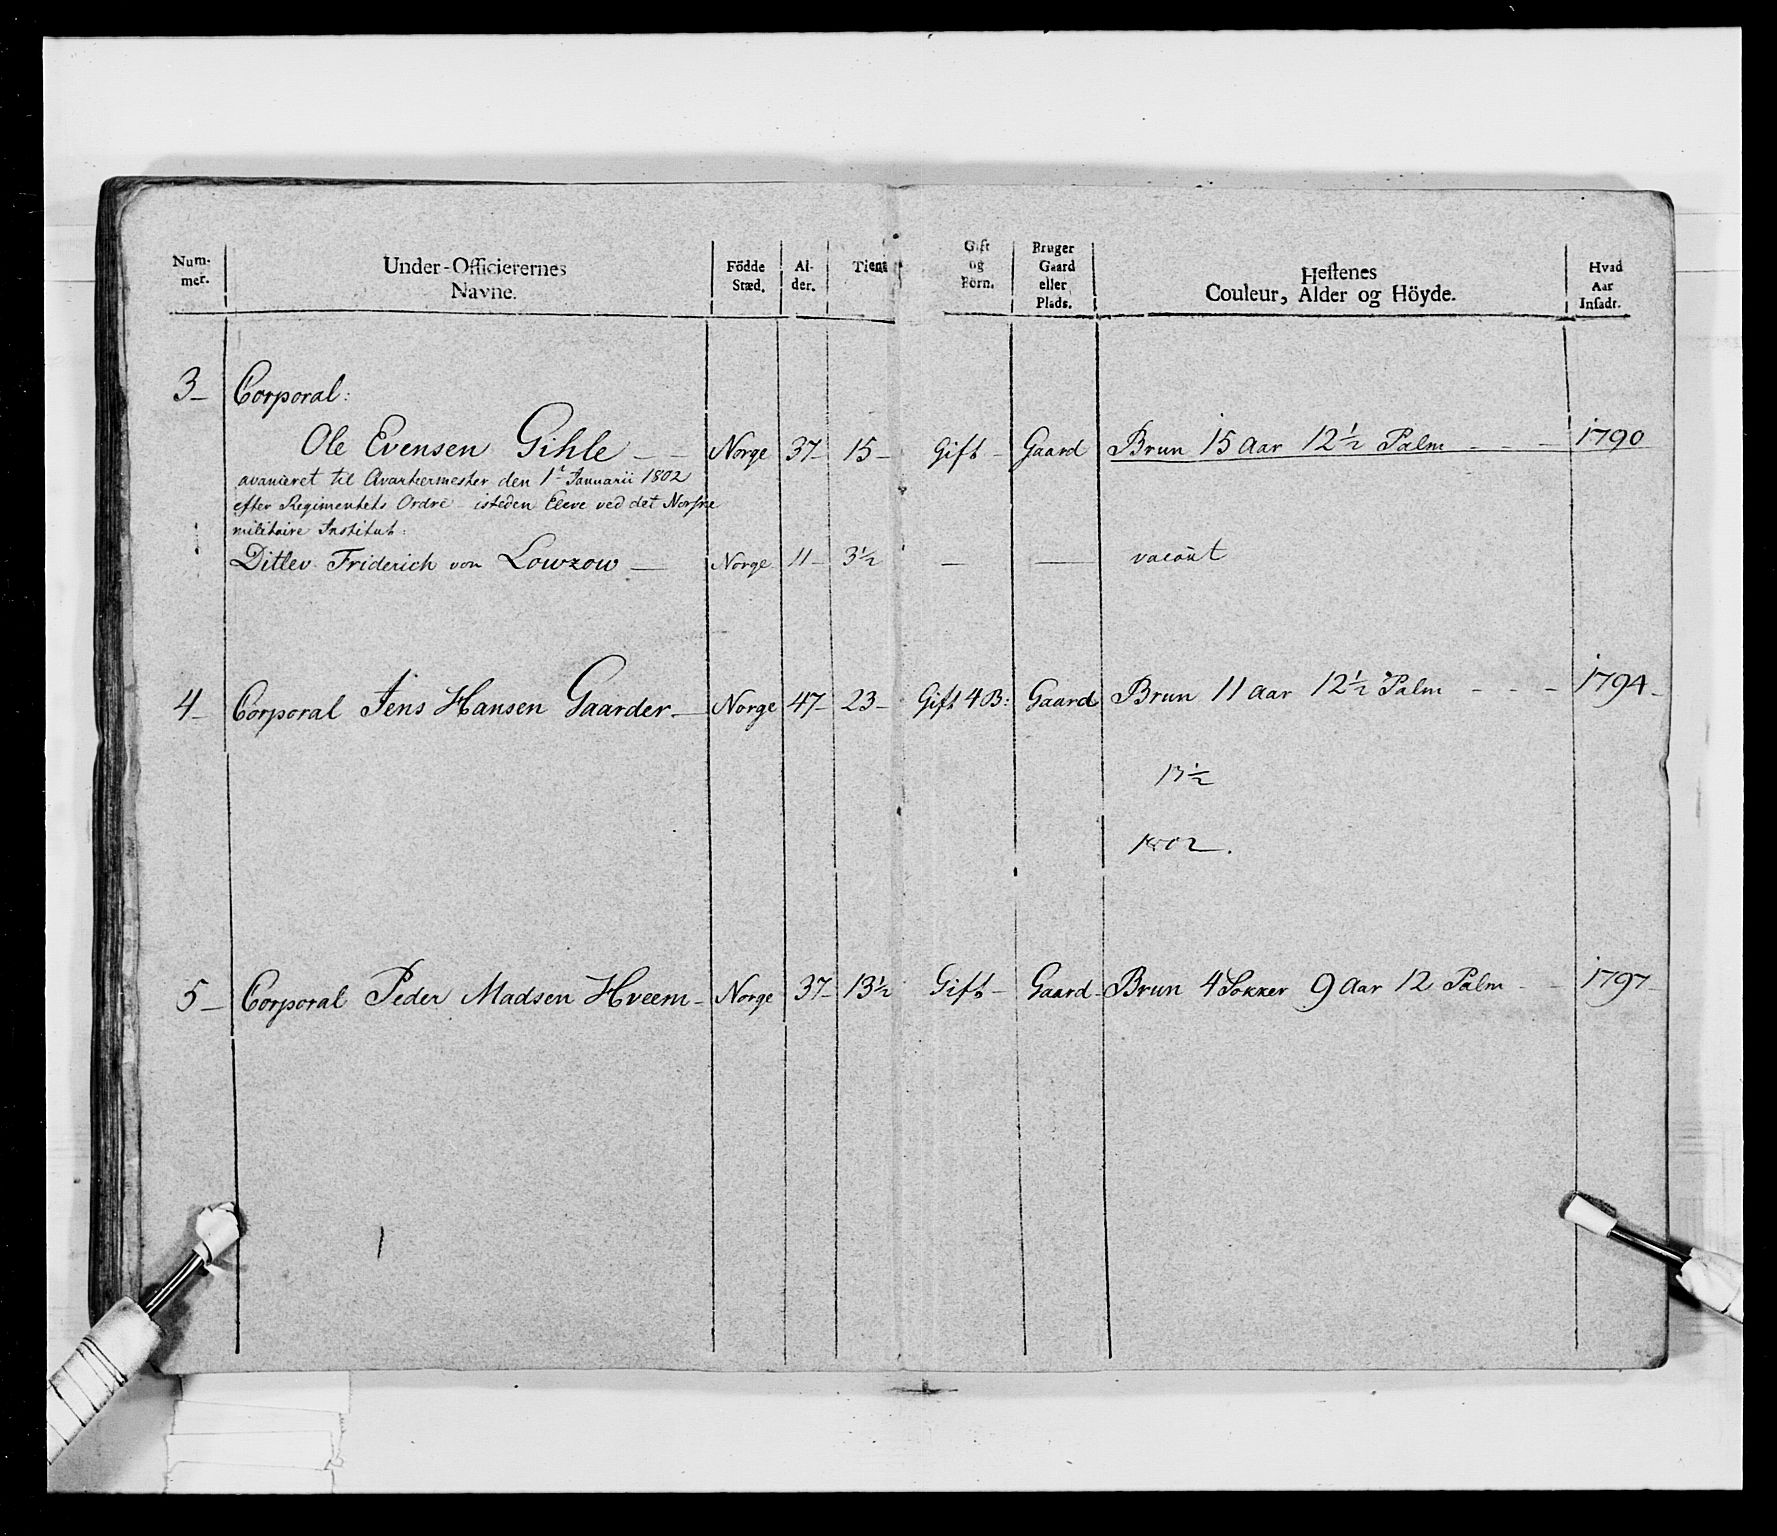 Num-
mer.
Under-Officierernes
Navne.
Födde
Stæd.
Al-
der.
Tient
Gift
og
Börn.
Bruger
Gaard
eller
Plads.
Hestenes
Couleur, Alder og Höyde.
Hvad
Aar
Insadt.
3 Corporal:
Ole Evensen Gihle Norge 37 15 Gift Gaard Brun 15 Aar 12½ Palm 1790
avanceret til Qvarteermester den 1t Januarii 1802
efter Regimentets Ordre isteden Eleve ved det Norske
militaire Institut:
Ditlev Friderich von Lowzow Norge 11 3½ vacant
4 Corporal Jens Hansen Gaarder Norge 47 23 Gift 4 B: Gaard Brun 11 Aar 12½ Palm 1794
13½
1802.
5 Corporal Peder Madsen Hveem Norge 37 13½ Gift Gaard Brun 4 Sokker 9 Aar 12 Palm 1797